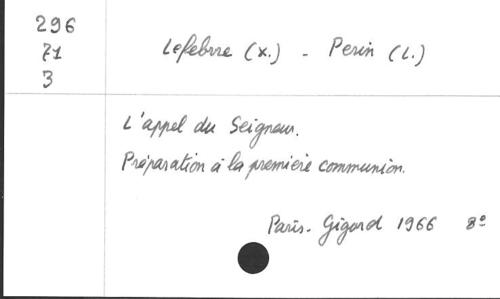 296
71
3
Lefebvre (X.) - Perin (L.)
L'appel du Seigneur.
Préparation à la première communion.
Paris - Gigord 1966 8º